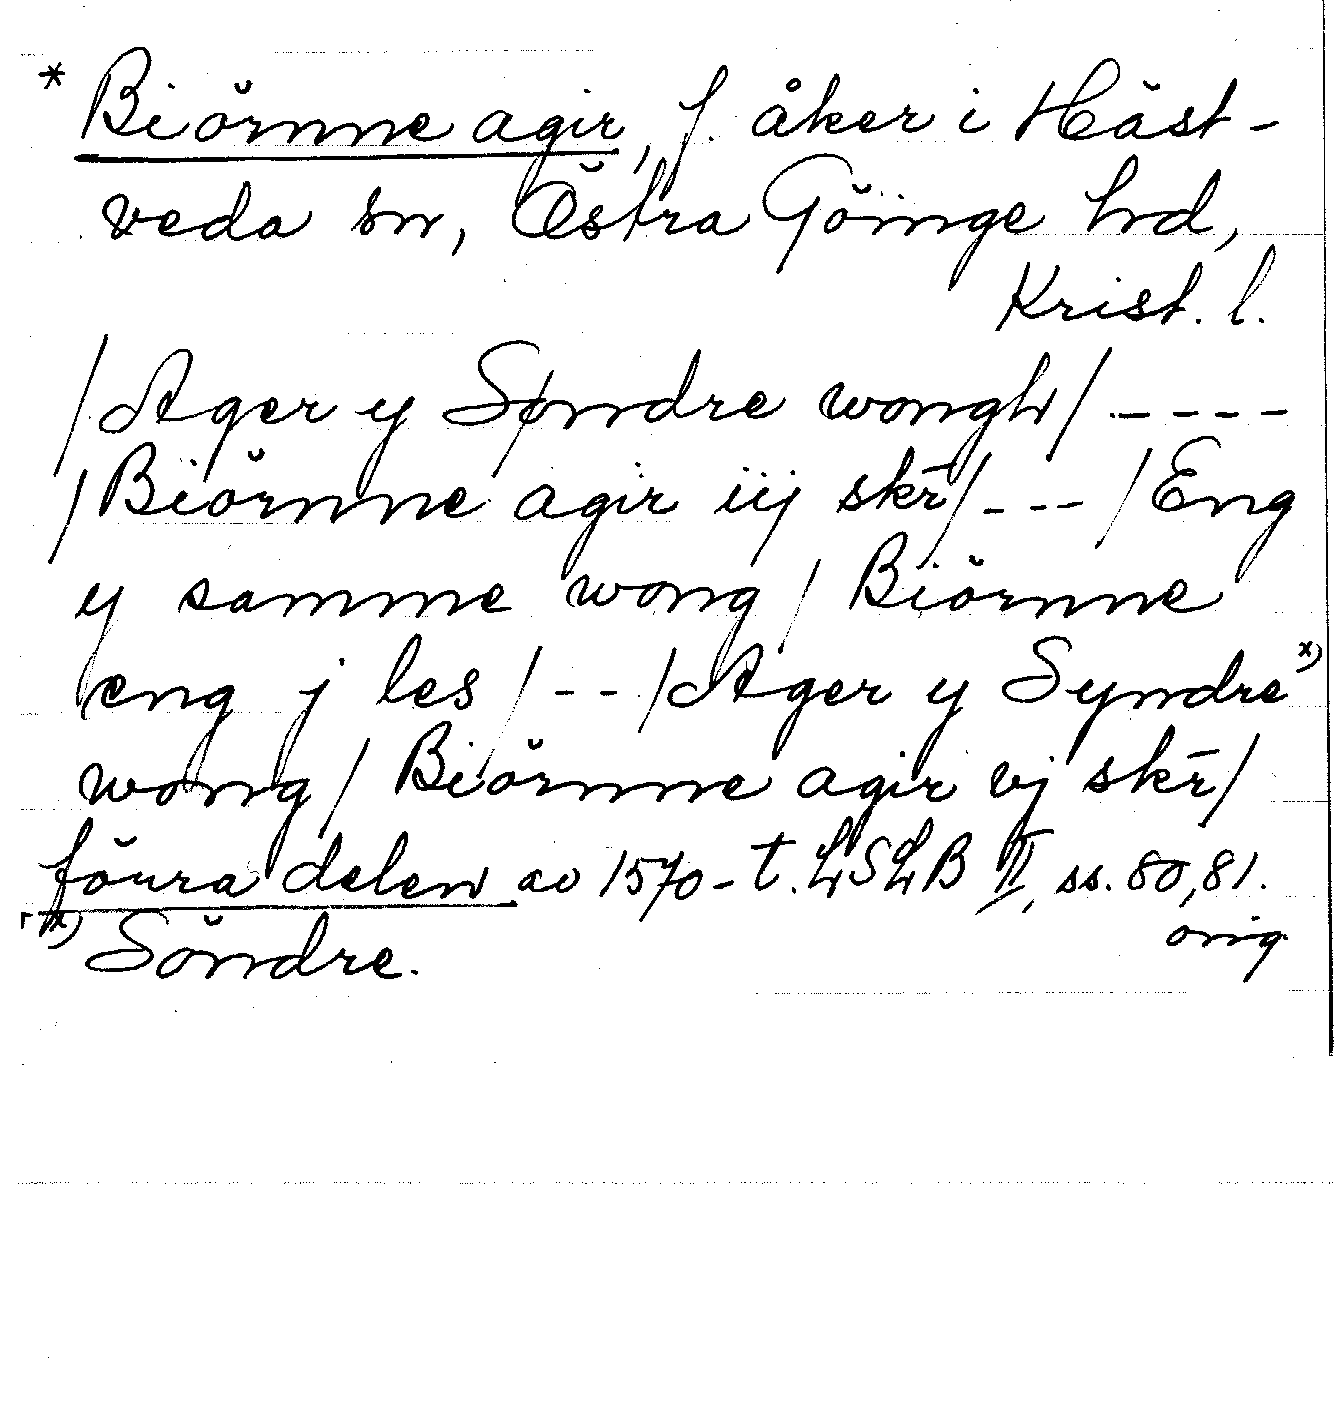 * Biörnne agir, f. åker i Häst-
veda sn, Östra Göinge hrd,
Krist. l.
/Ager y Søndre wongh/ ----
/Biörnne agir iij skr̄/ --- /Eng
y samme wong / Biörnne
eng j les / -- /Ager y Syndre x)
wong / Biörnne agir vj skr̄/
förra delen av 1570-t. LSLB II, ss. 80, 81.
orig.
x) Söndre.